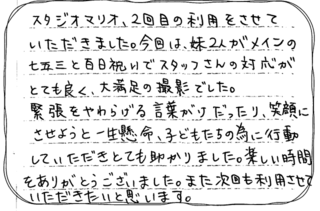 スタジオマリオ、2回目の利用をさせて
いただきました。今回は、妹2人がメインの
七五三と百日祝いでスタッフさんの対応が
とても良く、大満足の撮影でした。
緊張をやわらげる言葉がけだったり、笑顔に
させようと一生懸命、子どもたちの為に行動
していただきとても助かりました。楽しい時間
をありがとうございました。また次回も利用させて
いただきたいと思います。